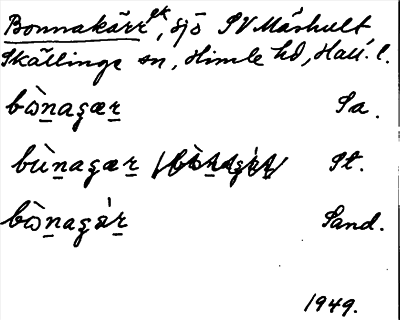 Bonnakärr sk, sjö SV Mårhult
Skällinge sn, Himle hd, Hall. l.
bɷ̀nagær Sa.
bùnagær St.
bɷ̀nagár Sand.
1949.